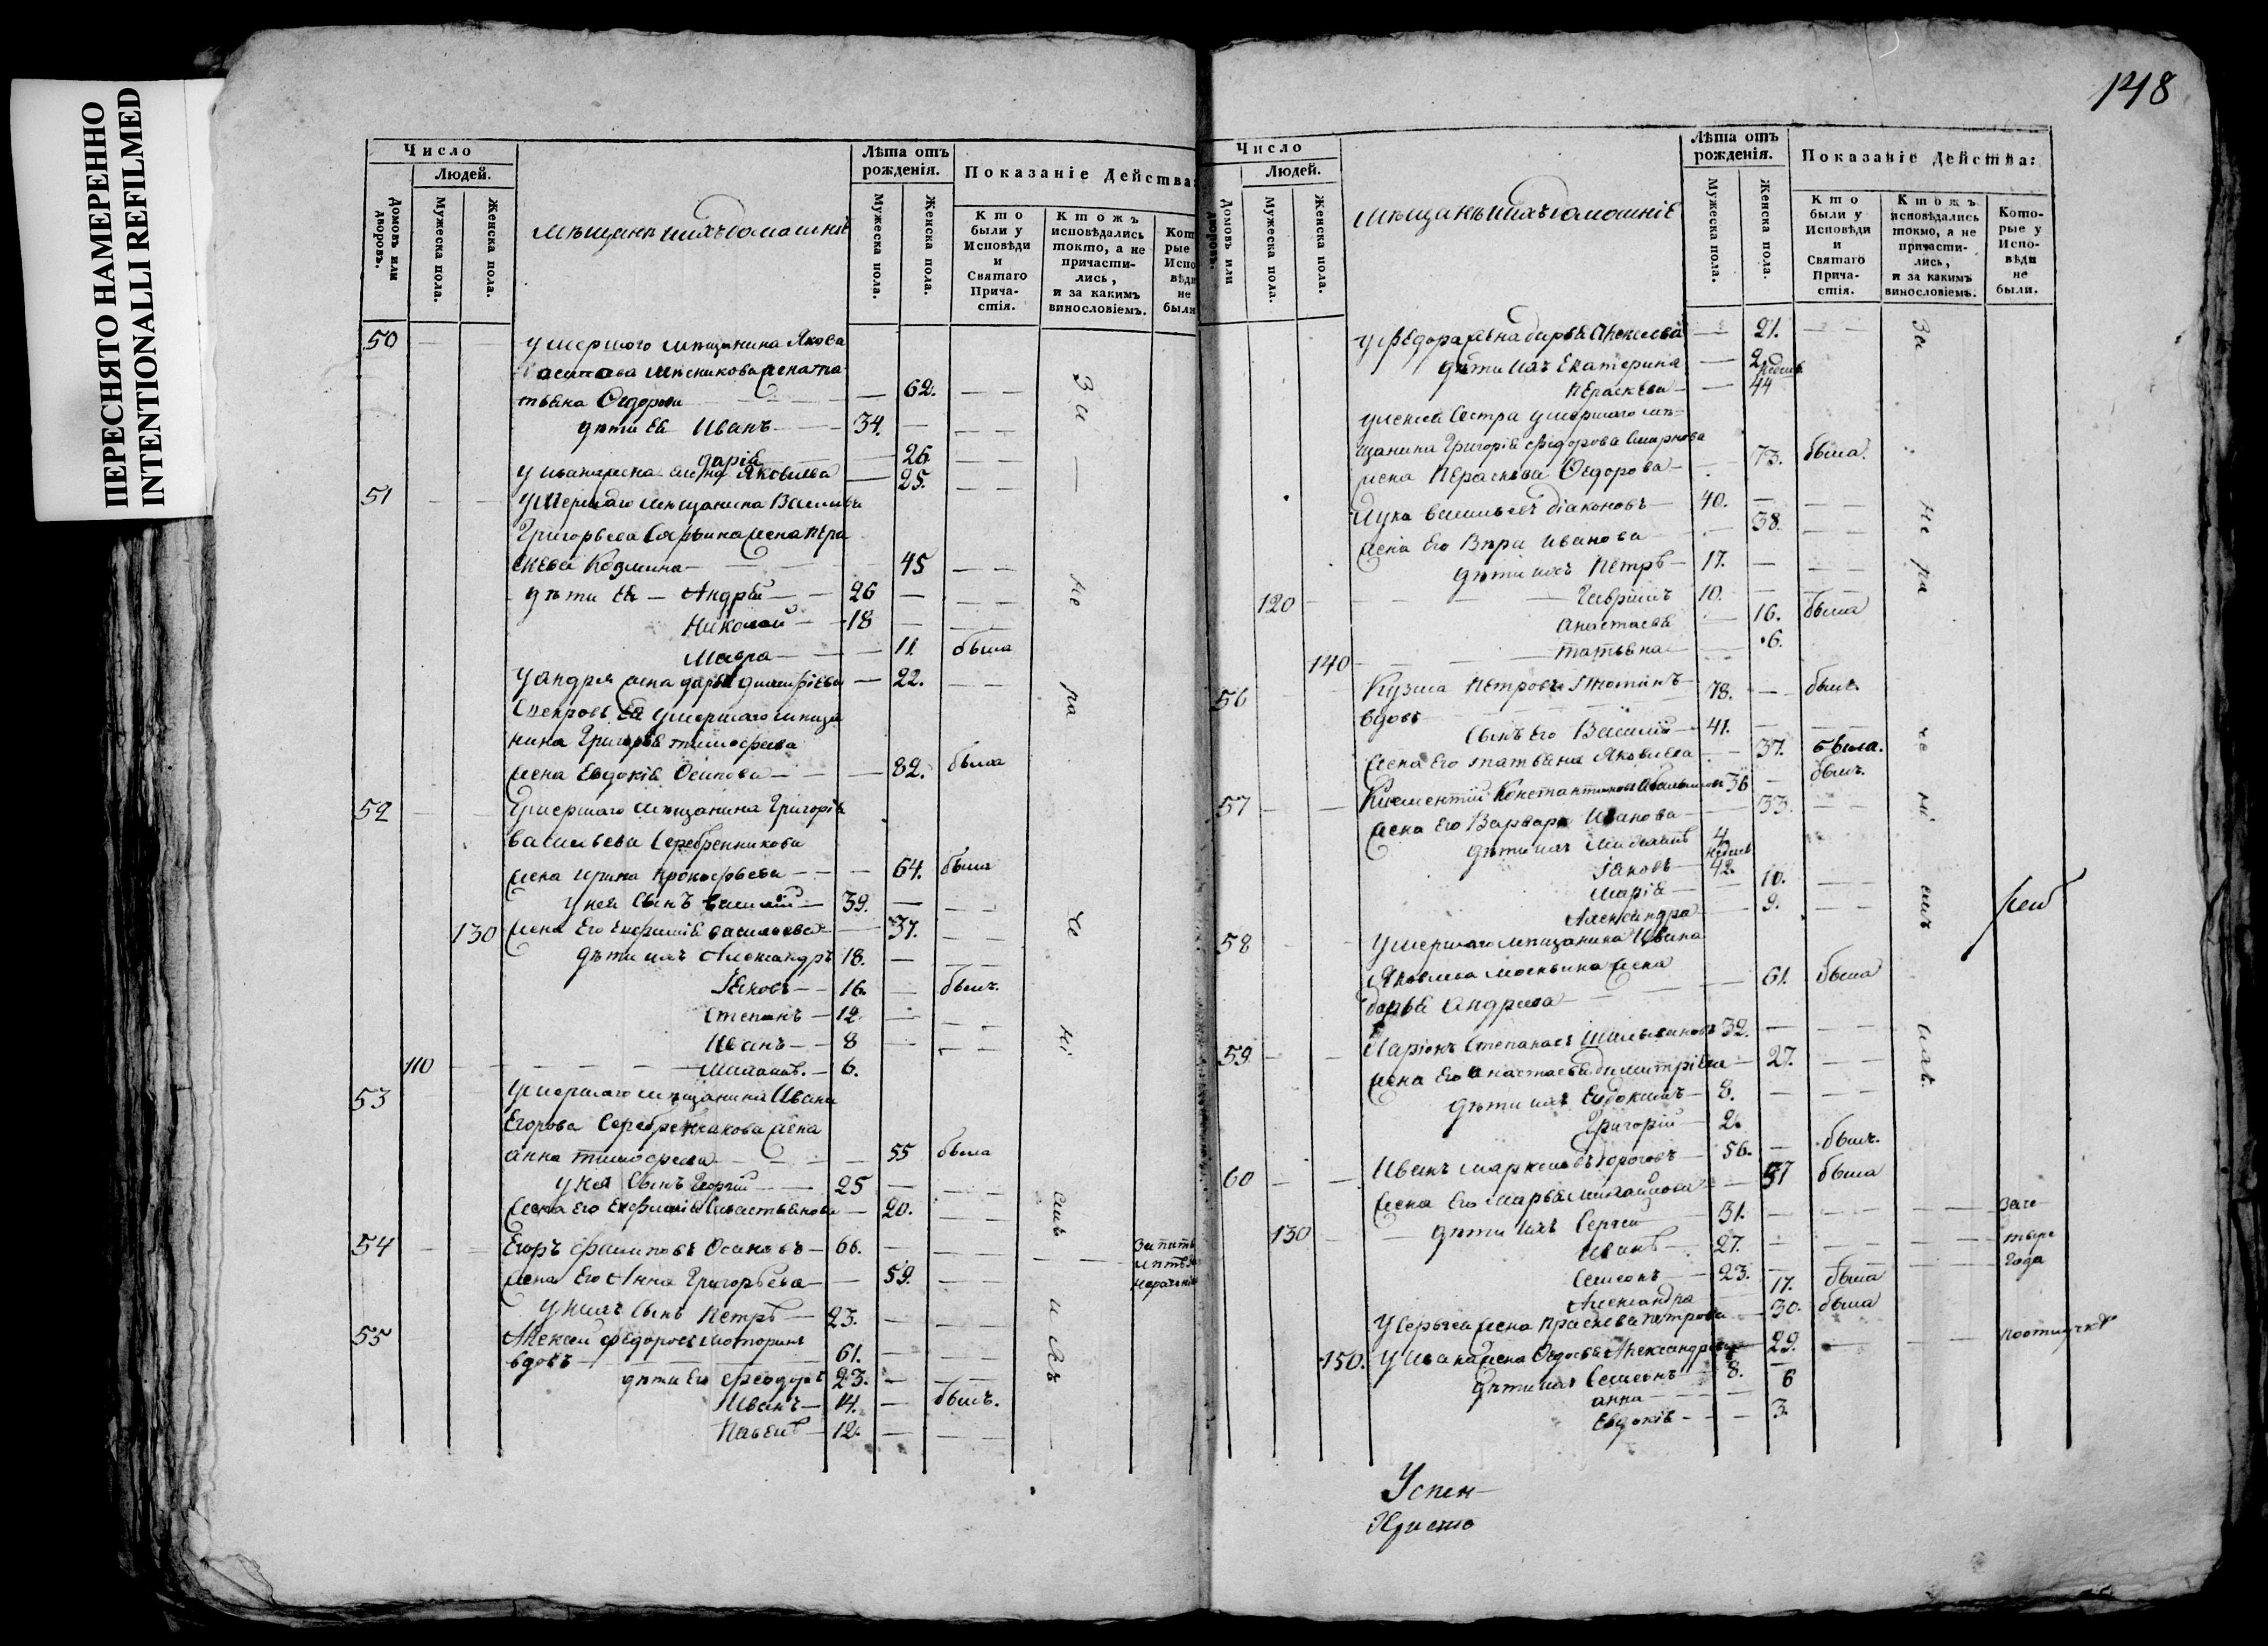 ПЕРЕСНЯТО НАМЕРЕННО
INTENTIONALLI REFILMED
Число
Людей.
Домовъ или дворовъ.
Мужеска пола.
Женска пола.
Мѣщане и ихъ домашніе
Лѣта отъ рожденія.
Мужеска пола.
Женска пола.
Показаніе Действа
Кто были у Исповѣди и Святаго Прича- стія.
Ктожъ исповѣдались токмо, а не причасти- лись, и за какимъ винословіемъ.
Кот рые Испо вѣди не были
50 умершаго мѣщанина Якова
жена та
тьяна Федорова 62.
дѣти Ея Иванъ 34.
дарія 26
у ивана жена Яковлева 25.
51 умершаго мѣщанина Василья
Григорьева жена Пера
скева Козмина 45
дѣти Ея Андрей 26
Николай 18
Мавра 11 была
у андрея жена дарья 22.
Свекровь Ея умершаго мѣща
нина Григорья тимофеева
жена Евдокія Осипова 82. была
52 умершаго мѣщанина Григорія
васильева Серебренникова
жена ирина прокофьева 64. была
у нея Сынъ василій 39.
130 жена Его васильева 37.
дѣти ихъ Александръ 18.
Яковъ 16. былъ.
Степанъ 12
Иванъ 8
110 Михаилъ. 6.
53 умершаго мѣщанина Ивана
Егорова Серебренникова жена
анна тимофеева 55 была
у нея Сынъ Георгій 25
жена Его 20.
54 Егоръ филиповъ 66. за пять
жена Его Анна Григорьева 59. лѣтъ
у нихъ Сынъ Петръ 23.
55 Алексей федоровъ моторинъ
вдовъ 61.
дѣти Его феодоръ 23.
Иванъ 14. былъ.
Павелъ 12.
За не ра че ні емъ ихъ
148
Число
Людей.
Домовъ или дворовъ.
Мужеска пола.
Женска пола.
Мѣщане и ихъ домашніе
Лѣта отъ рожденія.
Мужеска пола.
Женска пола.
Показаніе Действа:
Кто были у Исповѣди и Святаго Прича- стія.
Ктожъ исповѣдались токмо, а не причасти- лись, и за какимъ винословіемъ.
Кото- рые у Испо- вѣди не были.
у федора жена дарья Алексеева 21.
дѣти ихъ Екатерина 2 недели
Пераскева 44
Сестра умершаго мѣ-
щанина Григорія федорова Смирнова
жена Пераскева Федорова 73. была.
Лука васильевъ діаконовъ 40.
жена Его Вѣра иванова 38.
дѣти ихъ Петръ 17.
120 Гаврилъ 10.
Анастасья 16. была
140 татьяна 6.
56 Кузма Петровъ 78. былъ.
вдовъ
Сынъ Его Василій 41.
жена Его татьяна Яковлева 37. была.
57 Климентій Константиновъ 36 былъ.
жена Его Варвара Иванова 33.
дѣти ихъ Михаилъ 4
Іаковъ 42. недель
Марія 10.
Александра 9.
58 умершаго мѣщанина Ивана
Яковлева москвина жена
дарья Андреева 61. была
59 Ларіонъ Степановъ 32.
жена Его Анастасья димитріева 27.
дѣти ихъ Евдокимъ 8.
Григорій 2.
60 Иванъ 56. былъ.
жена Его Марья михайлова 57 была
130 дѣти ихъ Сергей 31. за че-
Иванъ 27. тыре
Семенъ 23. года
Александра 17. была
у Сергея жена праскева петрова 30. была
150. у Ивана жена Федосья Александрова 29. по отлучкѣ
дѣти ихъ Семенъ 8.
анна 6
Евдокія 3.
За не ра че ні емъ
Успен
Христо